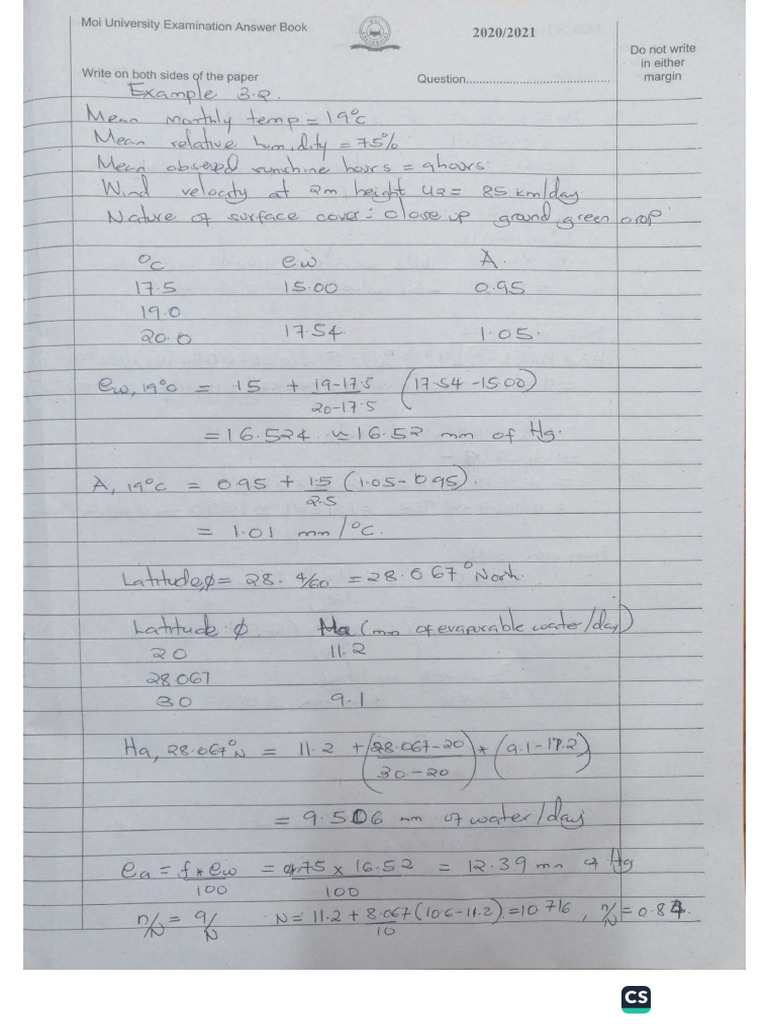 Moi University Examination Answer Book
2020/2021
Do not write
in either
margin
Write on both sides of the paper
Question..........................................
Example 3.2.
Mean monthly temp = 19°C
Mean relative humidity = 75%
Mean observed sunshine hours = 9hours.
Wind velocity at 2m height U2 = 85 km/day
Nature of surface cover = close up ground green crop
°C ew A.
17.5 15.00 0.95
19.0
20.0 17.54 1.05.
ew, 19°C = 15 + 19-17.5/20-17.5 (17.54 -15.00)
= 16.524 ≃ 16.52 mm of Hg.
A, 19°C = 0.95 + 1.5/2.5 (1.05- 0.95).
= 1.01 mm/°C.
Latitude,ϕ = 28. 4/60 = 28.067° North.
Latitude ϕ Ha (mm of evaporable water/day)
20 11.2
28.067
30 9.1
Ha, 28.067°N = 11.2 + (28.067-20/30-20) * (9.1-11.2)
= 9.506 mm of water/day
ea = f * ew/100 = 75 x 16.52/100 = 12.39 mm of Hg
n/N = 9/N N = 11.2 + 8.067/10 (10.6-11.2) = 10.716, n/N = 0.84.
CS